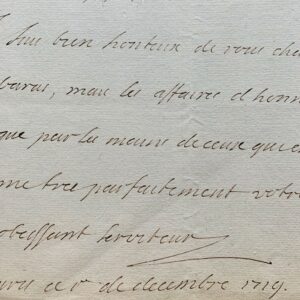 suis bien honteux de vous cha
baras, mais les affaires d honn
que par les mains de ceux qui o
me tres parfaitement votre
obeissant serviteur
ce 1r de decembre 1719.